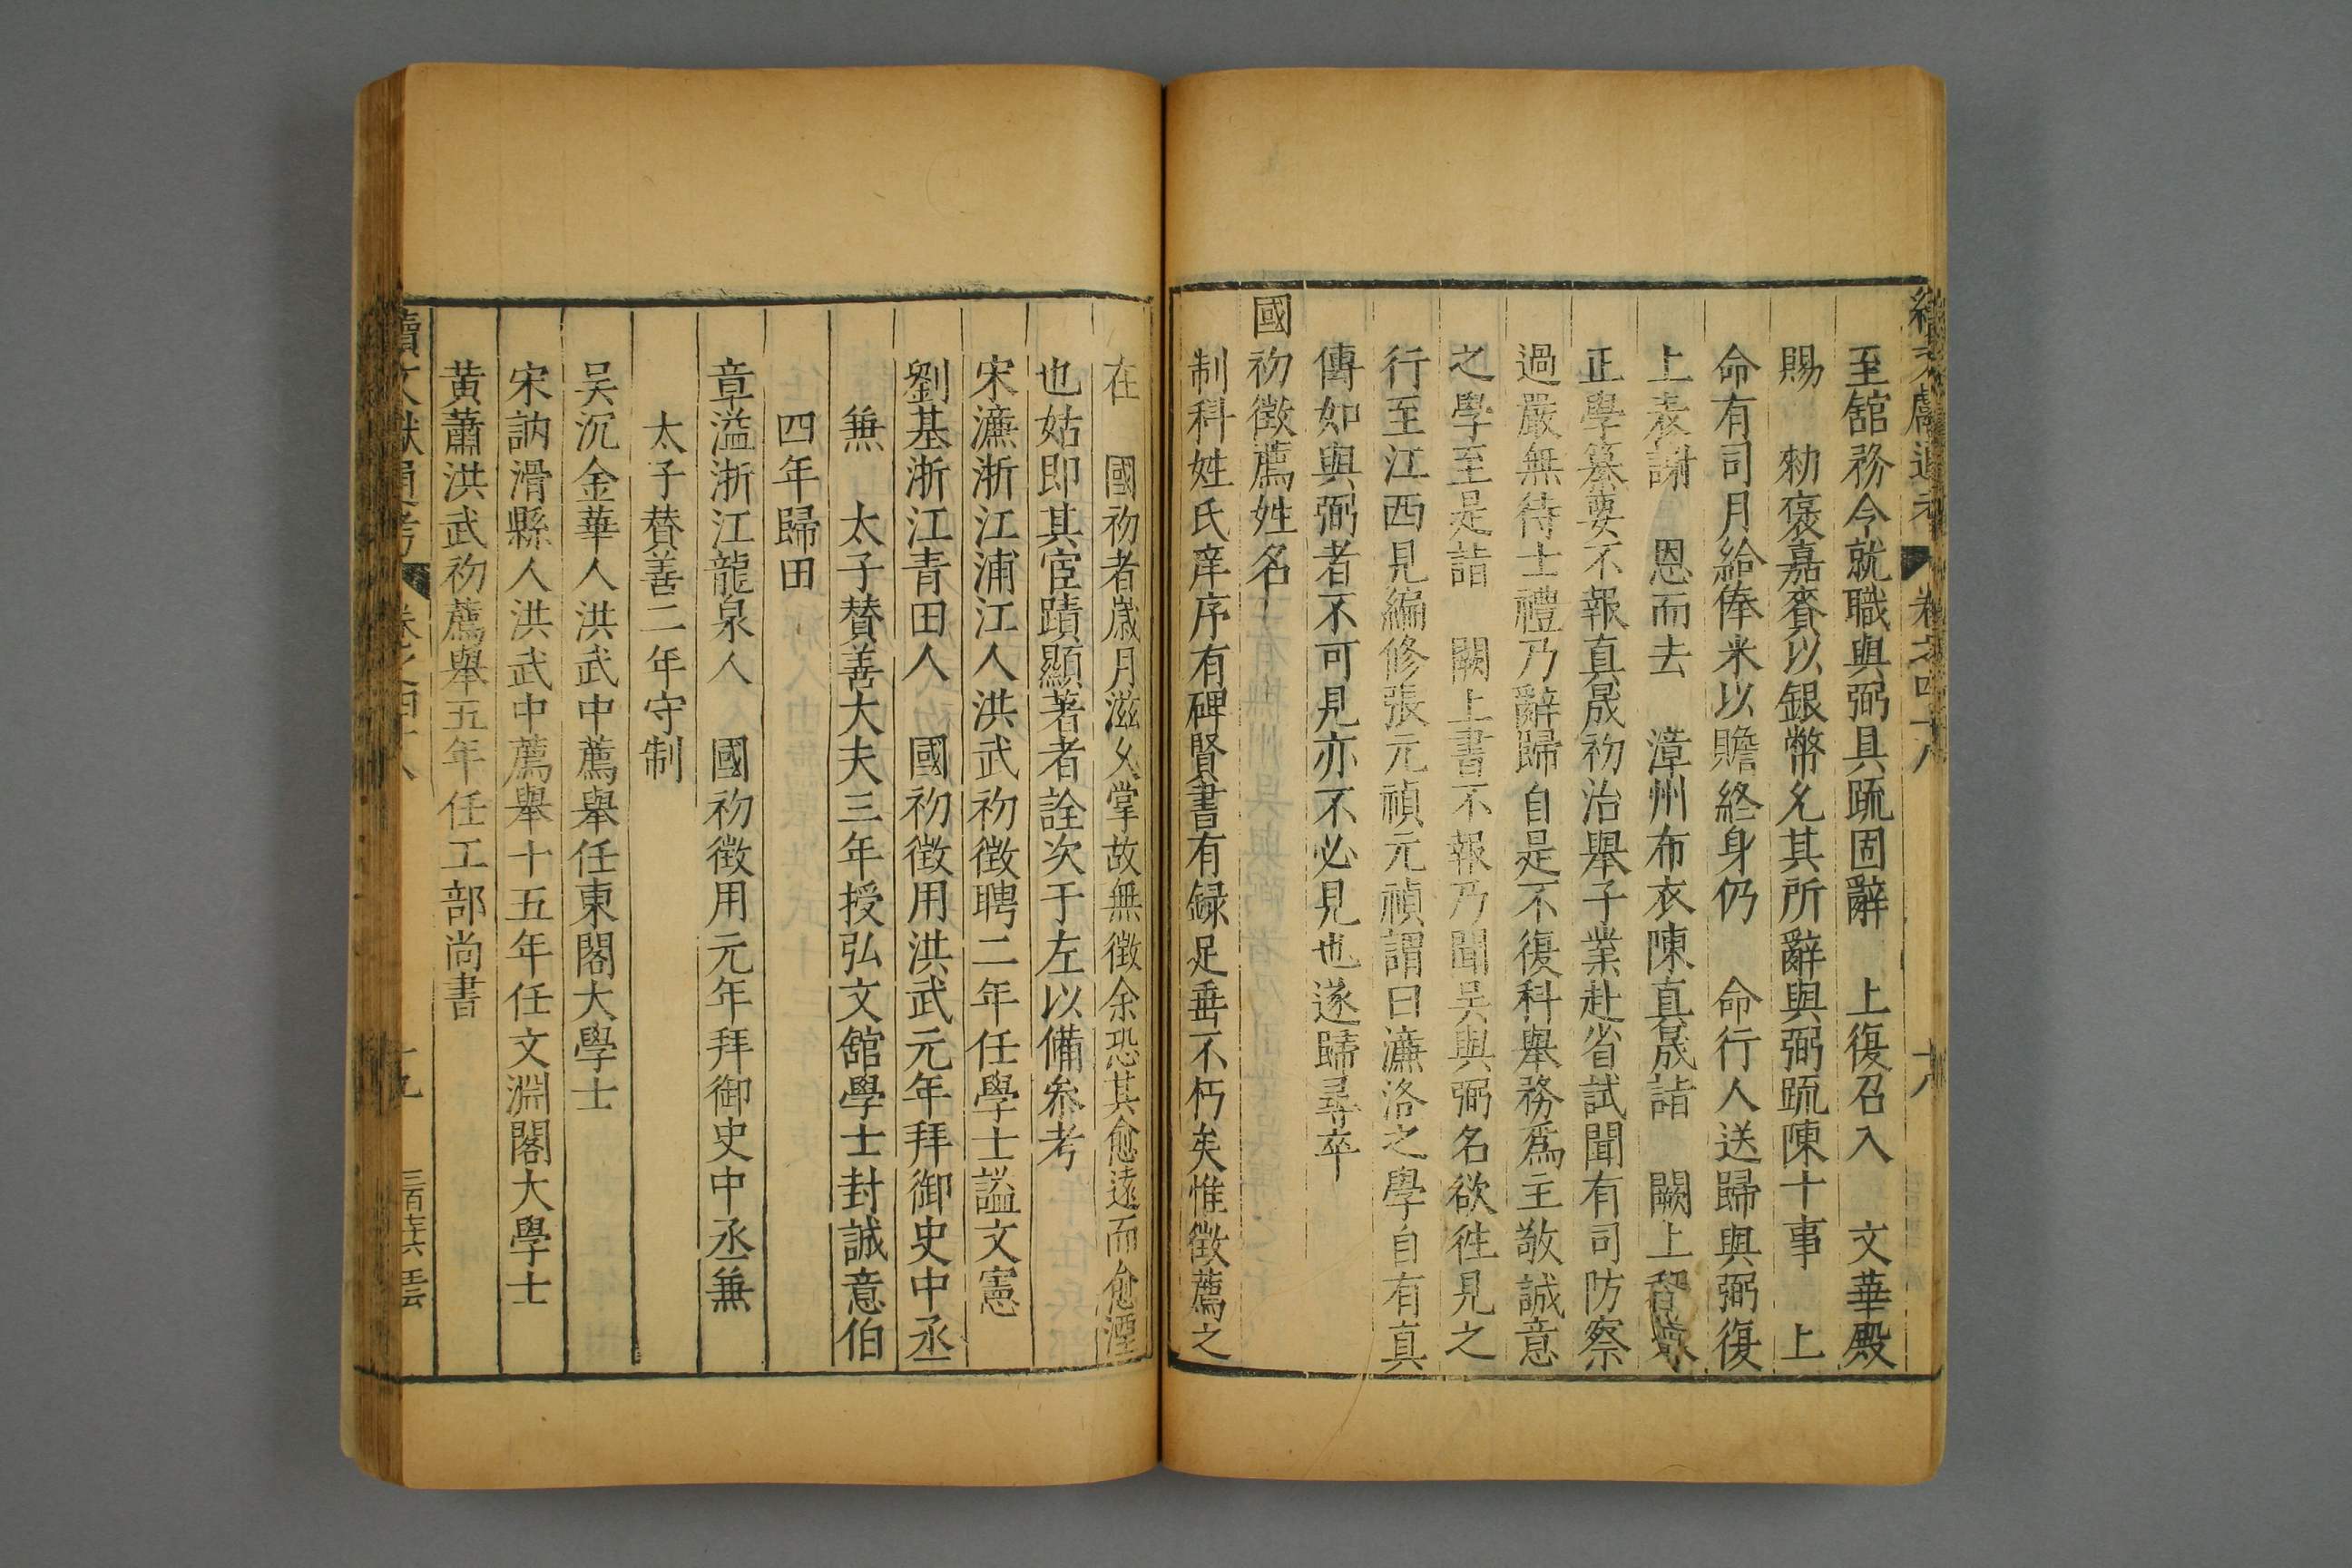 續文獻通考 卷之四十八 十八
至舘務令就職與弼具疏固辭 上復召入 文華殿
賜 勑褒嘉賚以銀幣允其所辭與弼疏陳十事 上
命有司月給俸米以贍終身仍 命行人送歸與弼復
上表謝 恩而去 漳州布衣陳真晟詣 闕上程
正學纂要不報真晟初治舉子業赴省試聞有司防察
過嚴無待士禮乃辭歸自是不復科舉務爲主敬誠意
之學至是詣 闕上書不報乃聞吳與弼名欲徃見之
行至江西見編修張元禎元禎謂曰濂洛之學自有真
傳如與弼者不可見亦不必見也遂歸尋卒
國初徵薦姓名
制科姓氏庠序有碑賢書有録足垂不朽矣惟徵薦之
在 國初者歲月滋久掌故無徵余恐其愈遠而愈湮
也姑即其宦蹟顯著者詮次于左以備叅考
宋濂浙江浦江人洪武初徵聘二年任學士謚文憲
劉基浙江青田人 國初徵用洪武元年拜御史中丞
兼 太子賛善大夫三年授弘文舘學士封誠意伯
四年歸田
章溢浙江龍泉人 國初徵用元年拜御史中丞兼
太子賛善二年守制
吴沉金華人洪武中薦舉任東閣大學士
宋訥滑縣人洪武中薦舉十五年任文淵閣大學士
黄蕭洪武初薦舉五年任工部尚書
續文獻通考 卷之四十八 十九